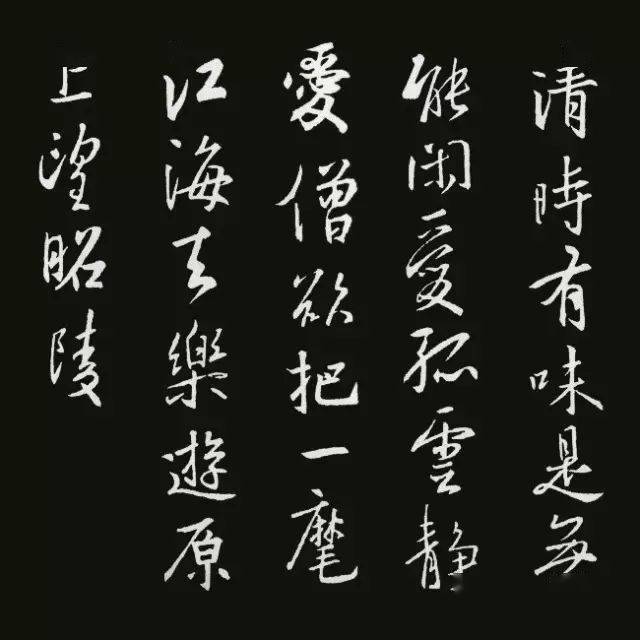 清時有味是無
能闲爱孤雲静
愛僧欲把一麾
江海去樂遊原
上望昭陵